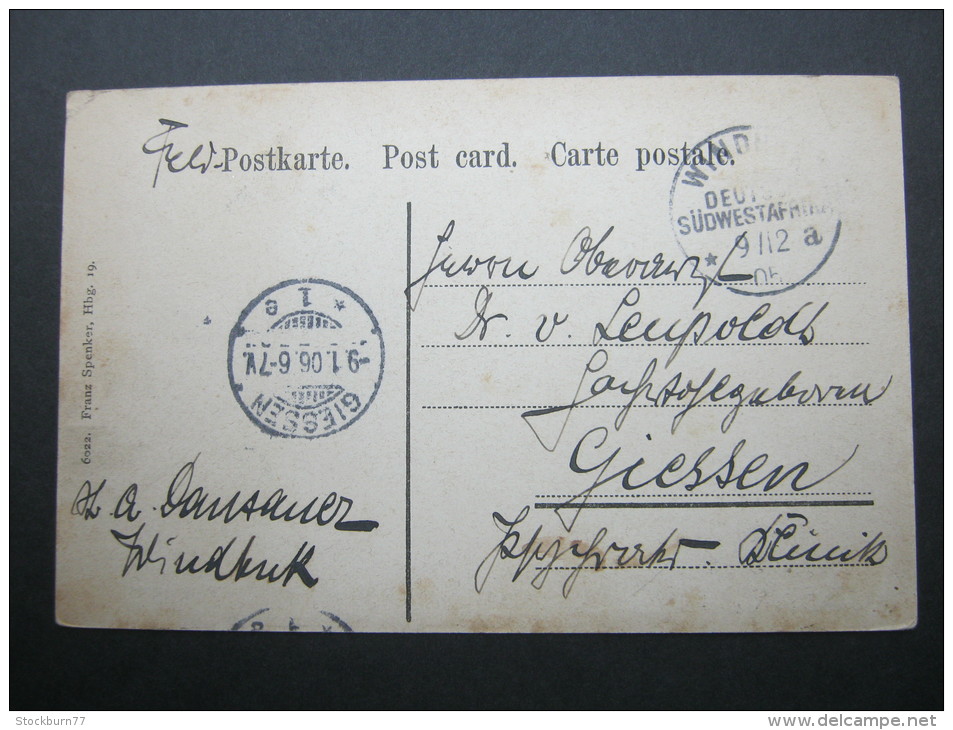 Feld-Postkarte. Post card. Carte postale.
WIND
DEUTSCH
SÜDWESTAFRIKA
* 9/12 a
05
Herrn Oberarzt
Dr. v. Leupoldt
Hochwohlgeboren
Giessen
Psychiatr. Klinik
* 1 e
9.1.06.6-7V.
GIESSEN
6022. Franz Spenker, Hbg. 19.
a. Dansauer
Windhuk
Stockburn77
delcampe.net